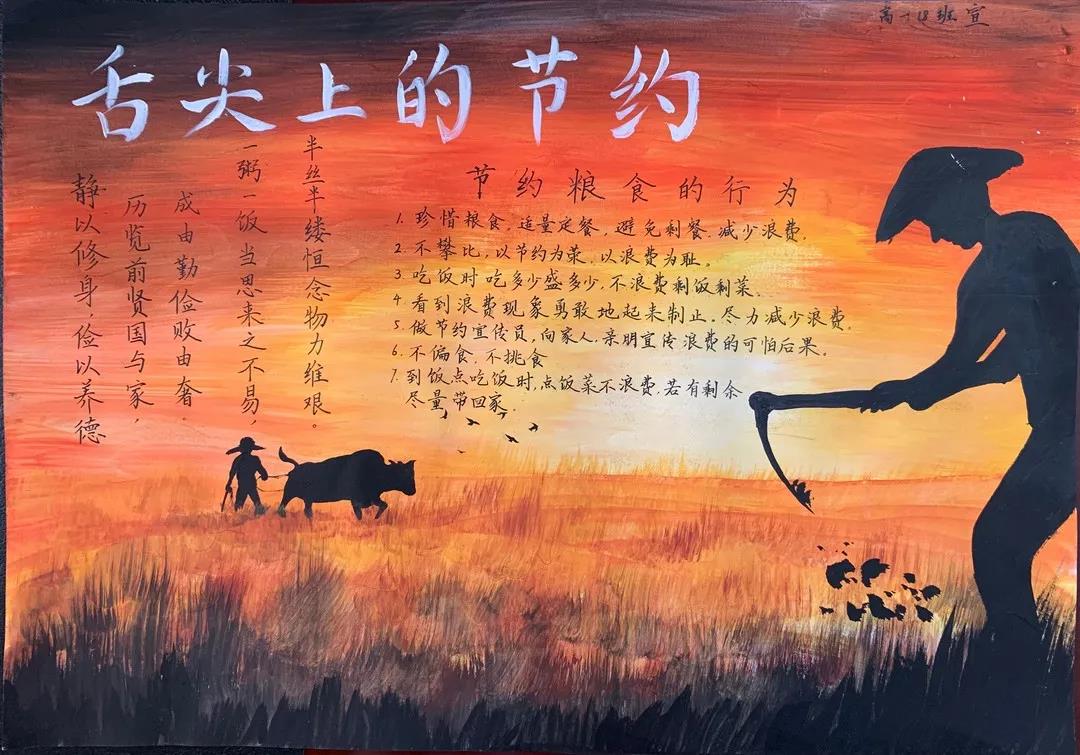 高一18班 宣
舌尖上的节约
静以修身，俭以养德
历览前贤国与家，
成由勤俭败由奢.
一粥一饭当思来之不易，
半丝半缕恒念物力维艰。
节约粮食的行为
1. 珍惜粮食，适量定餐，避免剩餐，减少浪费.
2. 不攀比，以节约为荣，以浪费为耻。
3. 吃饭时吃多少盛多少，不浪费剩饭剩菜.
4. 看到浪费现象勇敢地起来制止，尽力减少浪费.
5. 做节约宣传员，向家人，亲朋宣传浪费的可怕后果。
6. 不偏食，不挑食
7. 到饭点吃饭时，点饭菜不浪费，若有剩余
尽量带回家